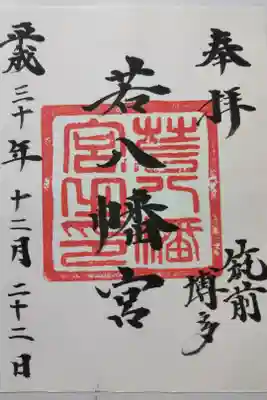 奉拝
筑前
博多
若八幡宮
若八幡宮之印
平成三十年十二月二十二日